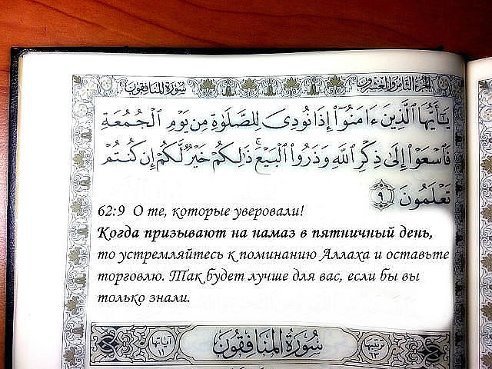 الجزء الثامن والعشرون سورة المنافقون
يَٰٓأَيُّهَا ٱلَّذِينَ ءَامَنُوٓا۟ إِذَا نُودِىَ لِلصَّلَوٰةِ مِن يَوْمِ ٱلْجُمُعَةِ
فَٱسْعَوْا۟ إِلَىٰ ذِكْرِ ٱللَّهِ وَذَرُوا۟ ٱلْبَيْعَ ۚ ذَٰلِكُمْ خَيْرٌ لَّكُمْ إِن كُنتُمْ
تَعْلَمُونَ ٩
62:9 О те, которые уверовали!
Когда призывают на намаз в пятничный день,
то устремляйтесь к поминанию Аллаха и оставьте
торговлю. Так будет лучше для вас, если бы вы
только знали.
سُورَةُ المُنَافِقُونَ